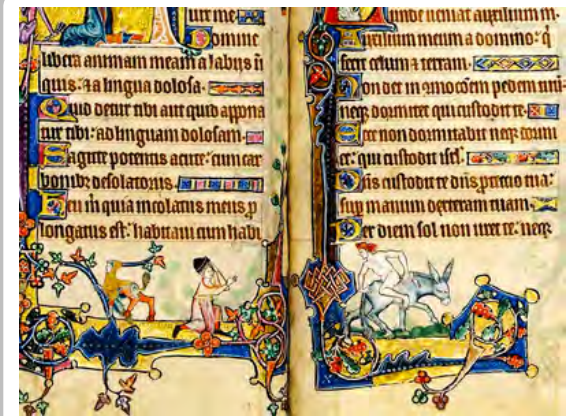 iuit me
Domine
libera animam meam a labijs in
quis: & a lingua dolosa.
Quid detur tibi aut quid appona
tur tibi: ad linguam dolosam.
Sagitte potentis acute: cum car
bonibꝫ desolatorijs.
Heu m quia incolatus meus p
longatus est: habitaui cum habi
unde ueniat auxilium m.
Auxilium meum a domino: q
fecit celum & terram.
Non det in pedem
neqꝫ dormitet qui custodit te
Ecce non dormitabit neqꝫ dormi
et: qui custodit isrl.
Dns custodit te dns protectio tua:
sup manum dexteram tuam.
Per diem sol non uret te: neqꝫ